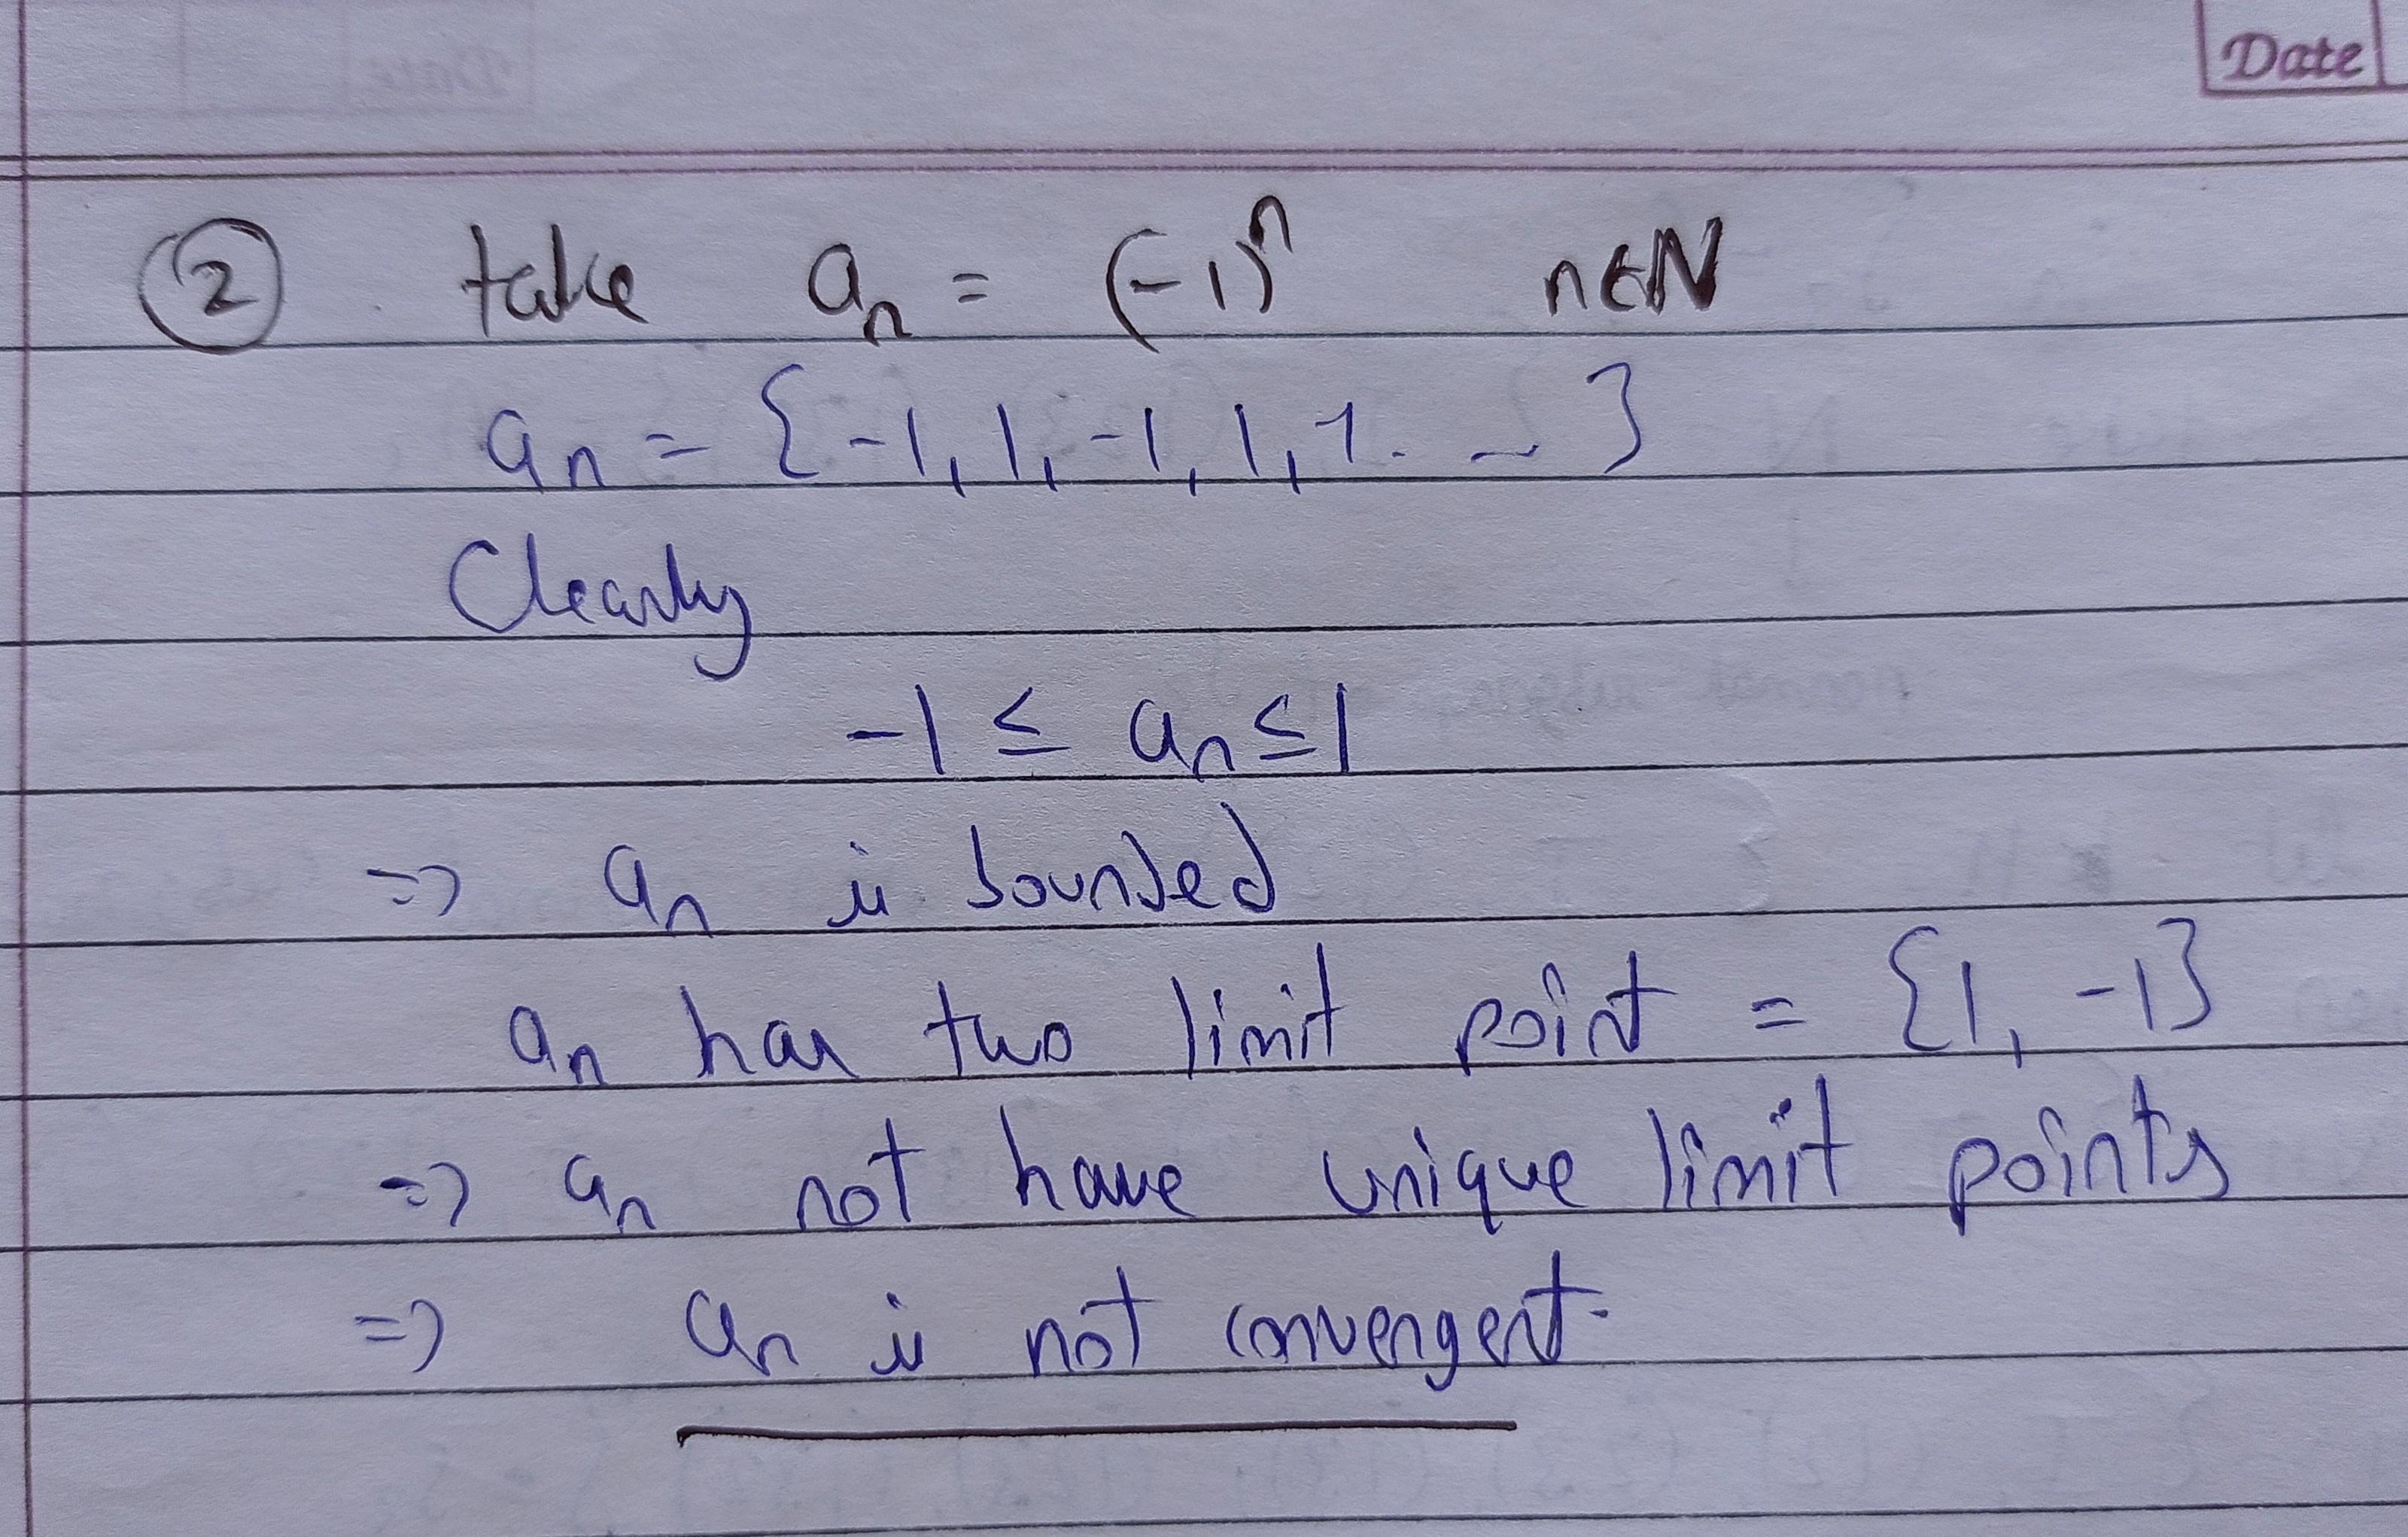 Date
② take aₙ = (-1)ⁿ n∈N
aₙ = {-1, 1, -1, 1, 1. - }
Clearly
-1 ≤ aₙ ≤ 1
=> aₙ is bounded
aₙ has two limit point = {1, -1}
=> aₙ not have unique limit points
=> aₙ is not convergent.